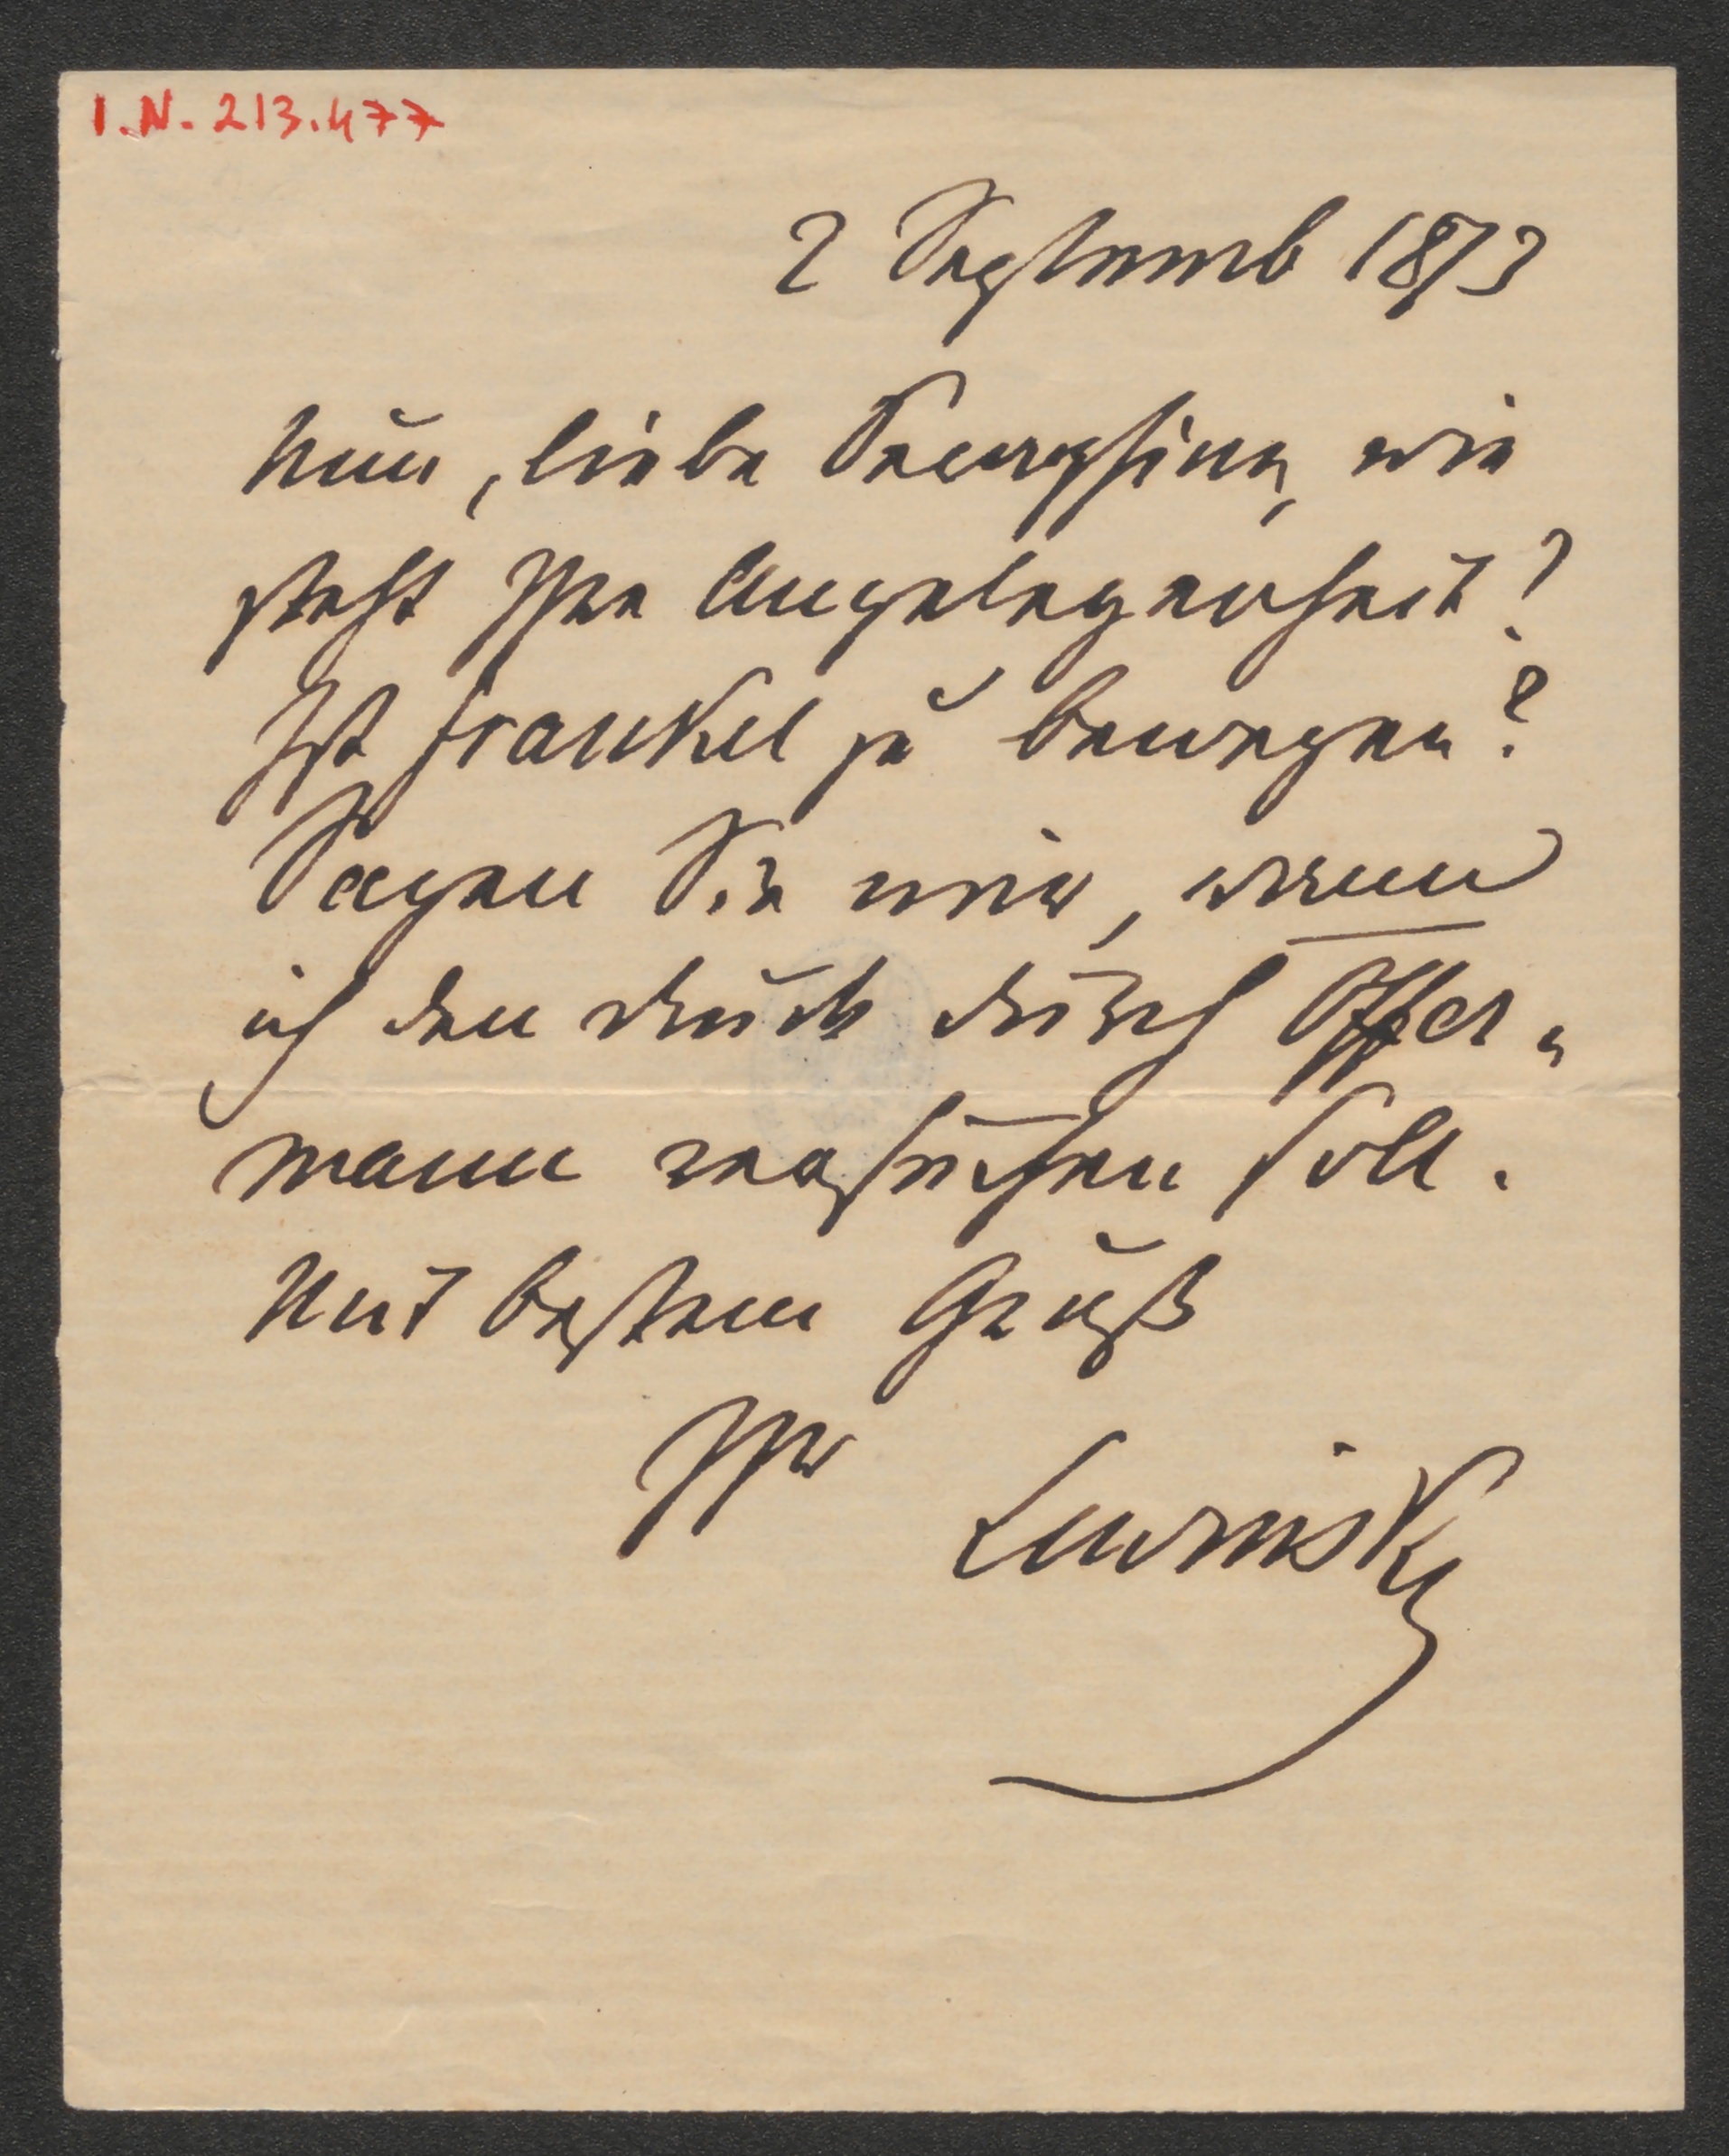 I.N. 213.477
2 Septemb 1873
Nun, liebe Seraphine, wie
steht Ihre Angelegenheit?
Ist Frankel zu bewegen?
Sagen Sie mir, wenn
ich den Druck durch Offer-
mann versuchen soll.
Mit bestem Gruß
Ihr Lewinsky